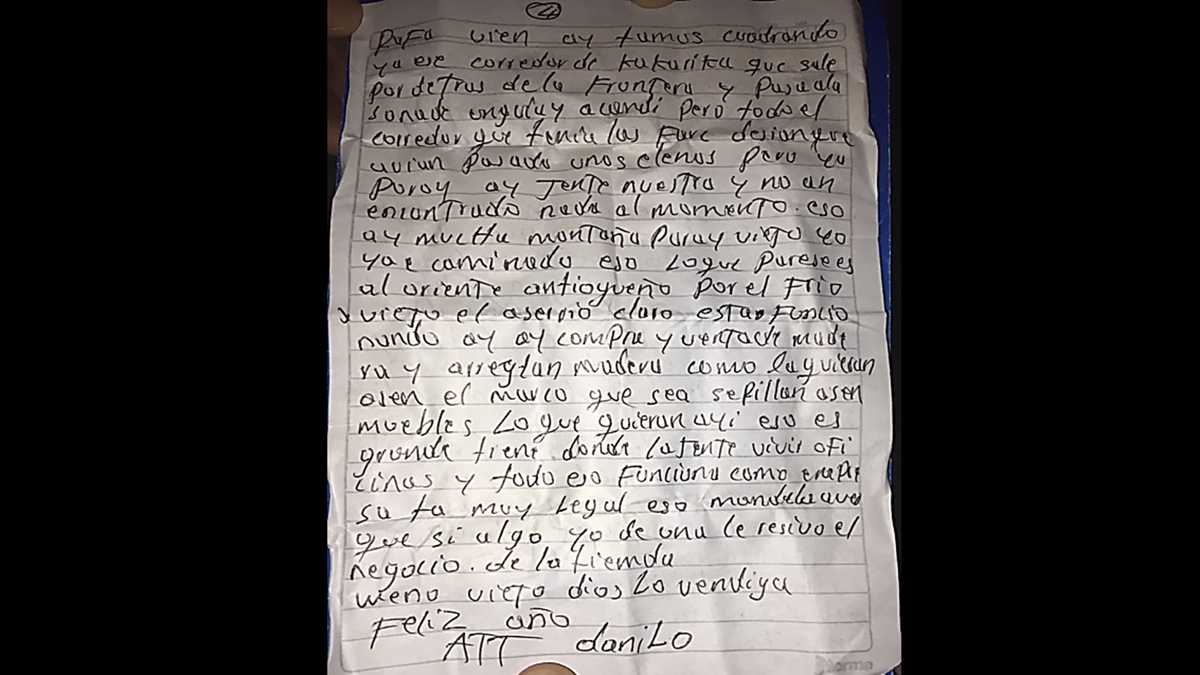 4
Papa vien ay tamos cuadrando
ya ese corredor de kakarika que sale
por detras de la Frontera y pasa ala
sona de unguia y acandi pero todo el
corredor que tenia las Farc desian que
avian pasado unos elenos pero ya
poray ay Jente nuestra y no an
encontrado nada al momento. eso
ay mucha montaña Poray viejo yo
ya e caminado eso Loque parese es
al oriente antioqueño por el Frio
y viejo el aserrio claro esta Funcio
nando ay ay compra y venta de made
ra y arreglan madera como la quieran
asen el marco que sea sepillan asen
muebles Lo que quieran ayi eso es
grande tiene donde la Jente vivir ofi
cinas y todo eso Funciona como enpre
sa ta muy Legal eso mandele aver
que si algo yo de una le resivo el
negocio. de la tiemda
weno viejo dios Lo vendiga
Feliz año
ATT daniLo
Norma